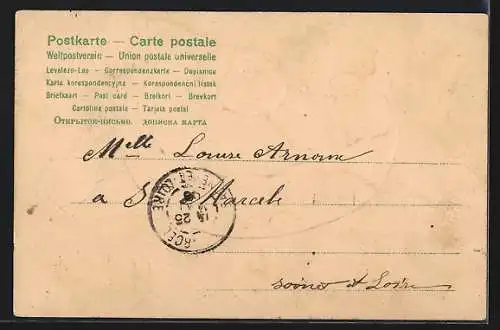 Postkarte — Carte postale
Weltpostverein — Union postale universelle
Levelezo-Lap — Correspondenzkarte — Dopisnice
Karta korespondencyjna — Korespondenční lístek
Briefkaart — Post card — Brefkort — Brevkort
Cartolina postale — Tarjeta postal
Открытое-письмо. дописна карта
Melle Louise
a S Marcele
LOIRE
25
saône et Loire